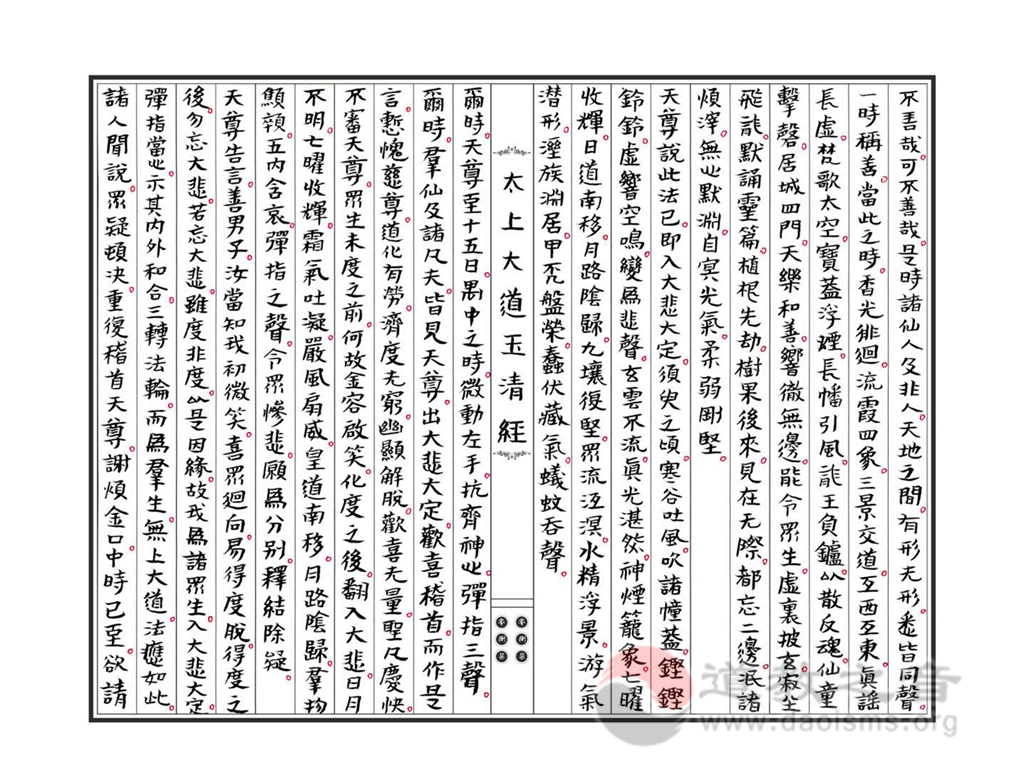 不善哉可不善哉是時諸仙人及非人天地之間有形无形悉皆同聲
一時稱善當此之時香光徘迴流霞四象三景交道亙西亙東真謡
長虛梵歌太空寶蓋浮煙長幡引風龍王負鑪以散反魂仙童
擊磬居城四門天樂和善響徹無邊能令眾生虛裏披玄寂坐
飛龍默誦靈篇植根先劫樹果後來見在无際都忘二邊泯諸
煩滓無心默淵自寞光氣柔弱剛堅
天尊說此法已即入大悲大定須臾之頃寒谷吐風吹諸幢蓋鏗鏗
鈴鈴虛響空鳴變為悲聲玄雲不流真光湛然神煙籠象七曜
收輝日道南移月路陰歸九壤復堅眾流沍溟水精浮景游氣
潛形溼族淵居甲禿盤縈蠢伏藏氣蟻蚊吞聲
太上大道玉清經
爾時天尊至十五日禺中之時微動左手抗齊神心彈指三聲
爾時羣仙及諸凡夫皆見天尊出大悲大定歡喜稽首而作是
言慙愧慈尊道化有勞濟度无窮幽顯解脫歡喜无量聖凡慶快
不審天尊眾生未度之前何故金容啟笑化度之後翻入大悲日月
不明七曜收輝霜氣吐凝嚴風扇威皇道南移月路陰歸羣物
顦顇五内含哀彈指之聲令眾慘悲願為分別釋結除疑
天尊告言善男子汝當知我初微笑喜眾迴向易得度脫得度之
後勿忘大悲若忘大悲雖度非度以是因緣故我為諸眾生入大悲大定
彈指當心示其内外和合三轉法輪而為羣生無上大道法應如此
諸人聞說眾疑頓決重復稽首天尊謝煩金口中時已至欲請
道教之音
www.daoisms.org